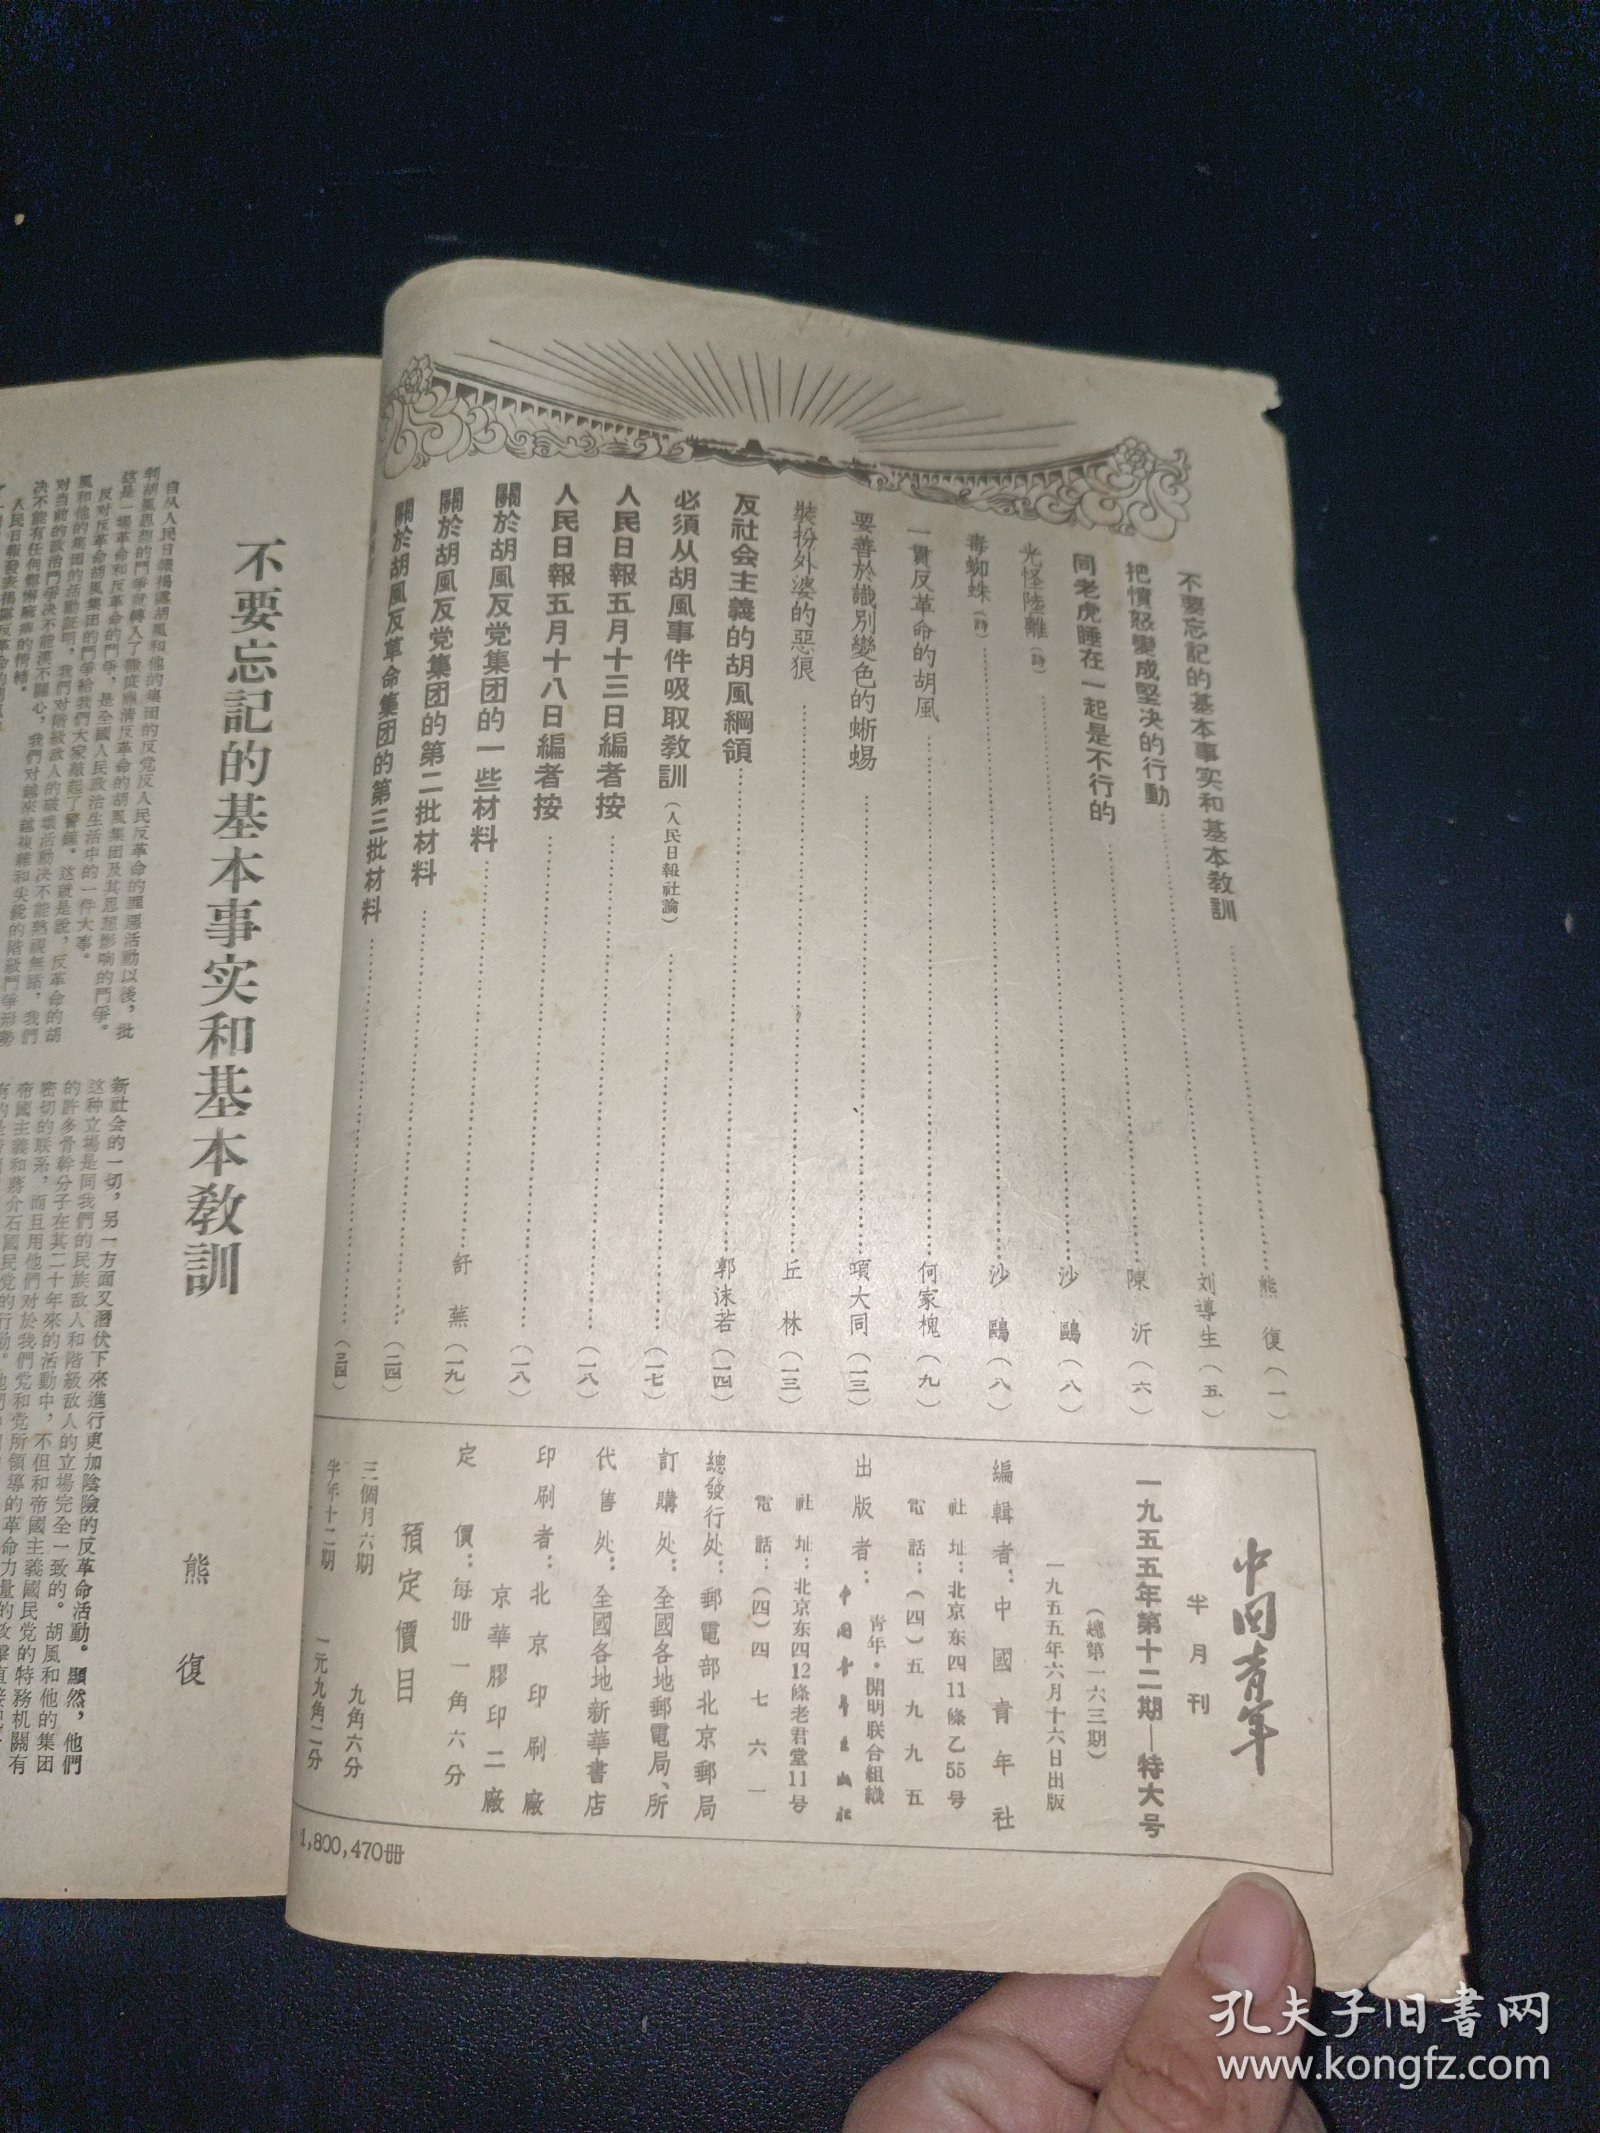 不要忘記的基本事实和基本教訓……熊復(一)
把憤怒變成堅决的行動……刘導生(五)
同老虎睡在一起是不行的……陳沂(六)
光怪陸離(詩)……沙鷗(八)
毒蜘蛛(詩)……沙鷗(八)
一貫反革命的胡風……何家槐(九)
要善於識別變色的蜥蜴……項大同(一三)
裝扮外婆的惡狼……丘林(一三)
反社会主義的胡風綱領……郭沫若(一四)
必須从胡風事件吸取教訓(人民日報社論)……(一七)
人民日報五月十三日編者按……(一八)
人民日報五月十八日編者按……(一八)
關於胡風反党集团的一些材料……舒蕪(一九)
關於胡風反党集团的第二批材料……(二四)
關於胡風反革命集团的第三批材料……(三四)
中国青年
半月刊
一九五五年第十二期—特大号
(總第一六三期)
一九五五年六月十六日出版
編輯者：中國青年社
社址：北京东四11條乙55号
電話：(四)五九九五
出版者：青年·開明联合組織
中国青年出版社
社址：北京东四12條老君堂11号
電話：(四)四七六一
總發行处：郵電部北京郵局
訂購处：全國各地郵電局、所
代售处：全國各地新華書店
印刷者：北京印刷廠
京華膠印二廠
定價：每册一角六分
預定價目
三個月六期 九角六分
半年十二期 一元九角二分
1,800,470册
不要忘記的基本事実和基本教訓
熊復
自从人民日報揭露胡風和他的集团的反党反人民反革命的罪惡活動以後，批
判胡風思想的鬥爭就轉入了徹底肅清反革命的胡風集团及其思想影响的鬥爭。
这是一場革命和反革命的鬥爭，是全國人民政治生活中的一件大事。
反对反革命胡風集团的鬥爭給我們大家敲起了警鐘。这就是說，反革命的胡
風和他的集团的活動証明，我們对階級敌人的破壞活動决不能熟視無睹，我們
对当前的政治鬥爭决不能漠不關心，我們对越來越複雜和尖銳的階級鬥爭形勢
决不能有任何鬆懈麻痺的情緒。
新社会的一切，另一方面又潛伏下來進行更加陰險的反革命活動。顯然，他們
这种立場是同我們的民族敌人和階級敌人的立場完全一致的。胡風和他的集团
的許多骨幹分子在其二十年來的活動中，不但和帝國主義國民党的特務机關有
密切的联系，而且用他們对於我們党和党所領導的革命力量的攻擊直接
孔夫子旧书网
www.kongfz.com